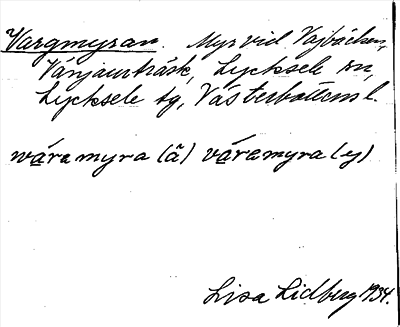 Vargmyran. Myr vid Vajbäcken,
Vänjaurträsk, Lycksele sn,
Lycksele tg, Västerbottens l.
wäramyra (ã) väramyra (y)
Lisa Lidberg 1934.